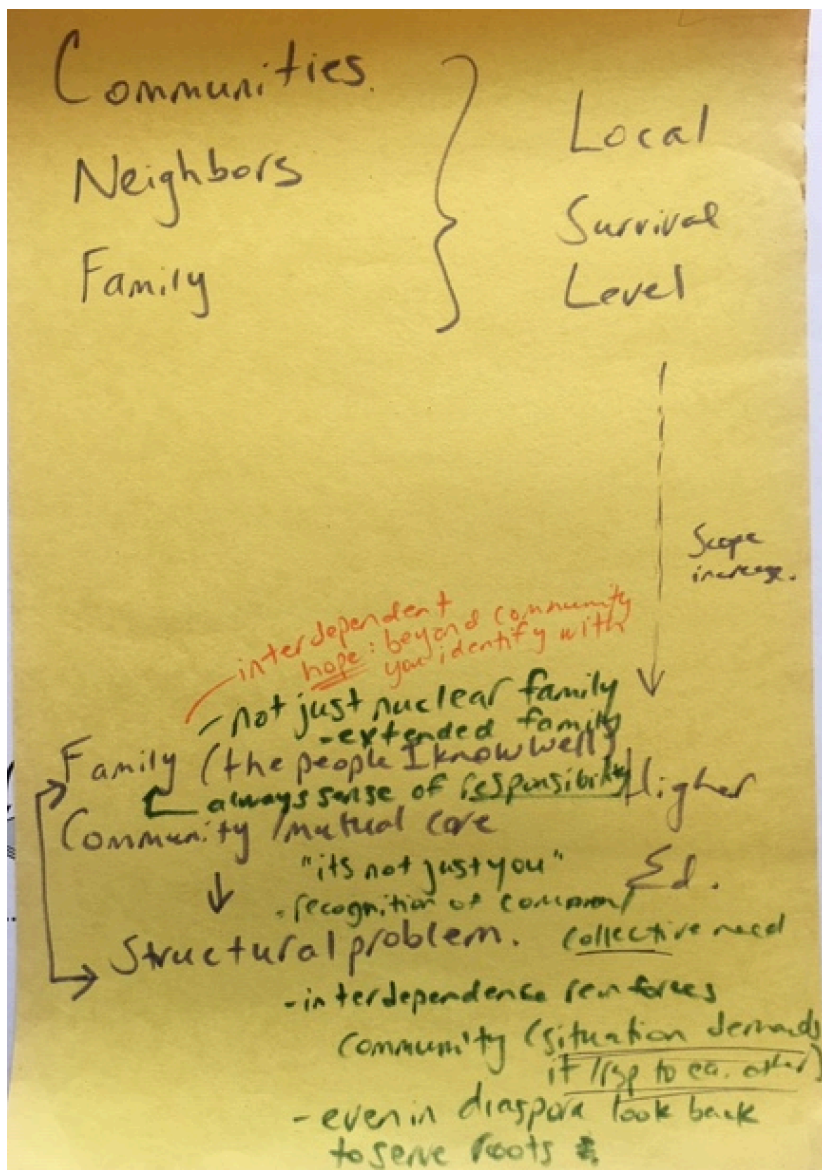 Communities.
Neighbors
Family
Local
Survival
Level
Scope
increase.
interdependent
hope: beyond community
you identify with
- not just nuclear family
- extended family
Family (the people I know well)
always sense of responsibility
Higher
Ed.
Community / mutual care
"its not just you"
- recognition of common/
collective need
Structural problem.
- interdependence reinforces
community (situation demands
it / to ea. other)
- even in diaspora look back
to serve roots